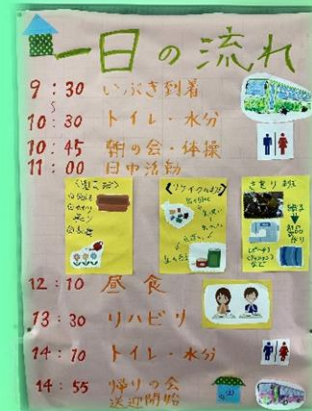 一日の流れ
9:30 いぶき到着
10:30 トイレ・水分
10:45 朝の会・体操
11:00 日中活動
さをり班
12:10 昼食
13:30 リハビリ
14:10 トイレ・水分
14:55 帰りの会
送迎開始